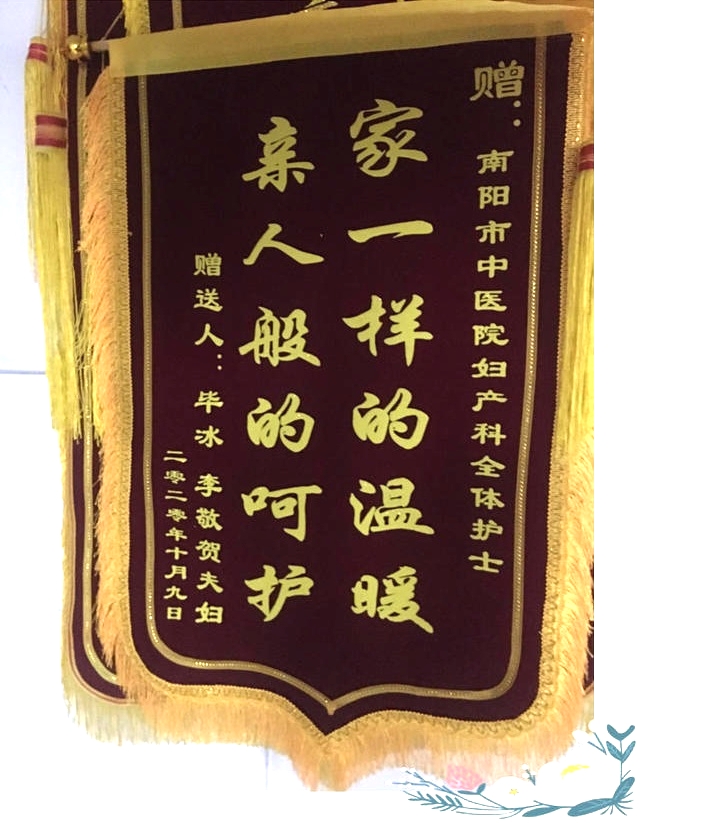 赠：
南阳市中医院妇产科全体护士
家一样的温暖
亲人般的呵护
赠送人：毕冰 李敬贺夫妇
二零二零年十月九日